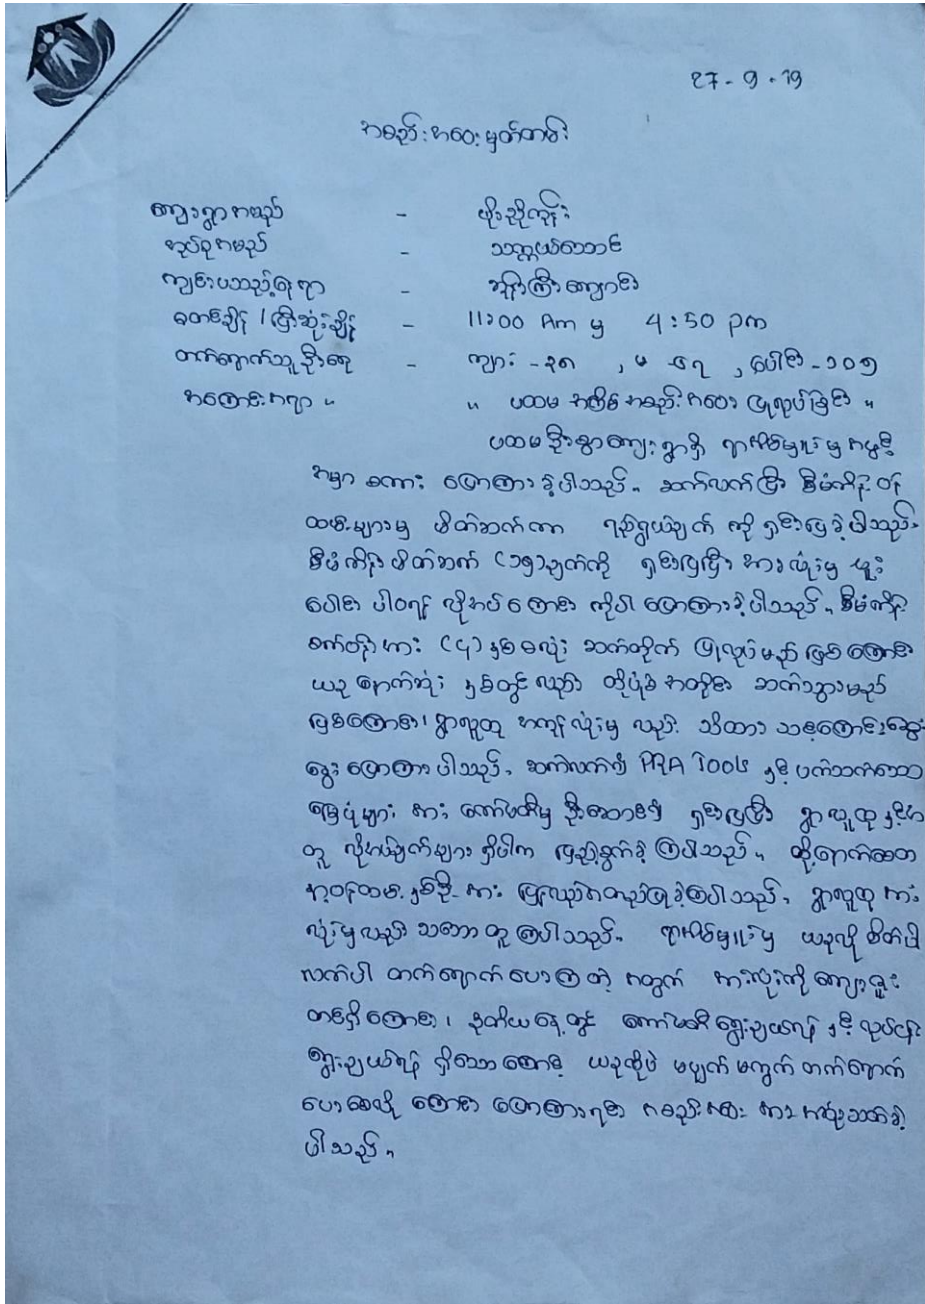 27 - 9 - 19
အစည်းအဝေးမှတ်တမ်း
ကျေးရွာအမည် - ဖိုးညိုကုန်း
အုပ်စုအမည်
ကျင်းပသည့်နေရာ - ဘုန်းကြီးကျောင်း
စတင်ချိန် / ပြီးဆုံးချိန် - 11:00 Am မှ 4:50 pm
တက်ရောက်သူဦးရေ - ကျား - ၃၈ , မ - ၆၇ , ပေါင်း - ၁၀၅
အကြောင်းအရာ " " ပထမ အကြိမ် အစည်းအဝေး ပြုလုပ်ခြင်း "
ပထမဦးစွာ ကျေးရွာရှိ ရာအိမ်မှူးမှ အဖွင့်
အမှာ စကား ပြောကြားခဲ့ပါသည်။ ဆက်လက်ပြီး စီမံကိန်း ဝန်
ထမ်းများမှ မိတ်ဆက်ကာ ရည်ရွယ်ချက် ကို ရှင်းပြခဲ့ပါသည်။
စီမံကိန်း မိတ်ဆက် (၁၅)ချက်ကို ရှင်းပြပြီး အားလုံးမှ ပူး
ပေါင်း ပါဝင်ရန် လိုအပ်ကြောင်း ကိုပါ ပြောကြားခဲ့ပါသည်။ စီမံကိန်း
စက်ဝန်းအား (၄)နှစ်စလုံး ဆက်တိုက် ပြုလုပ်မည် ဖြစ်ကြောင်း
ယခု နောက်ဆုံး နှစ်တွင် လည်း ထိုပုံစံ အတိုင်း ဆက်သွားမည်
ဖြစ်ကြောင်း၊ ရွာလူထု အကုန်လုံးမှ လည်း သိထား သင့်ကြောင်းဆွေး
နွေး ပြောကြားပါသည်။ ဆက်လက်၍ PRA Tools နှင့် ပက်သက်သော
မြေပုံများ အား ကော်မတီမှ ဦးဆောင်၍ ရှင်းပြပြီး ရွာလူထုနှင့်အ
တူ လိုအပ်ချက်များ ရှိပါက ဖြည့်စွက်ခဲ့ကြပါသည်။ ထို့နောက်စေတ
နာ့ဝန်ထမ်းနှစ်ဦးအား ပြန်လည်အတည်ပြုခဲ့ကြပါသည်။ ရွာလူထု အား
လုံးမှလည်း သဘောတူကြပါသည်။ ရာအိမ်မှူးမှ ယခုလို စိတ်ပါ
လက်ပါ တက်ရောက်ပေးကြတဲ့ အတွက် အားလုံးကို ကျေးဇူး
တင်ရှိကြောင်း၊ ဒုတိယနေ့တွင် ကော်မတီရွေးချယ်ရန် နှင့် လုပ်ငန်း
ရွေးချယ်ရန် ရှိသောကြောင့် ယခုလိုပဲ မပျက် မကွက် တက်ရောက်
ပေးစေလို ကြောင်း ပြောကြားရင်း အစည်းအဝေး အား အဆုံးသတ်ခဲ့
ပါသည်။